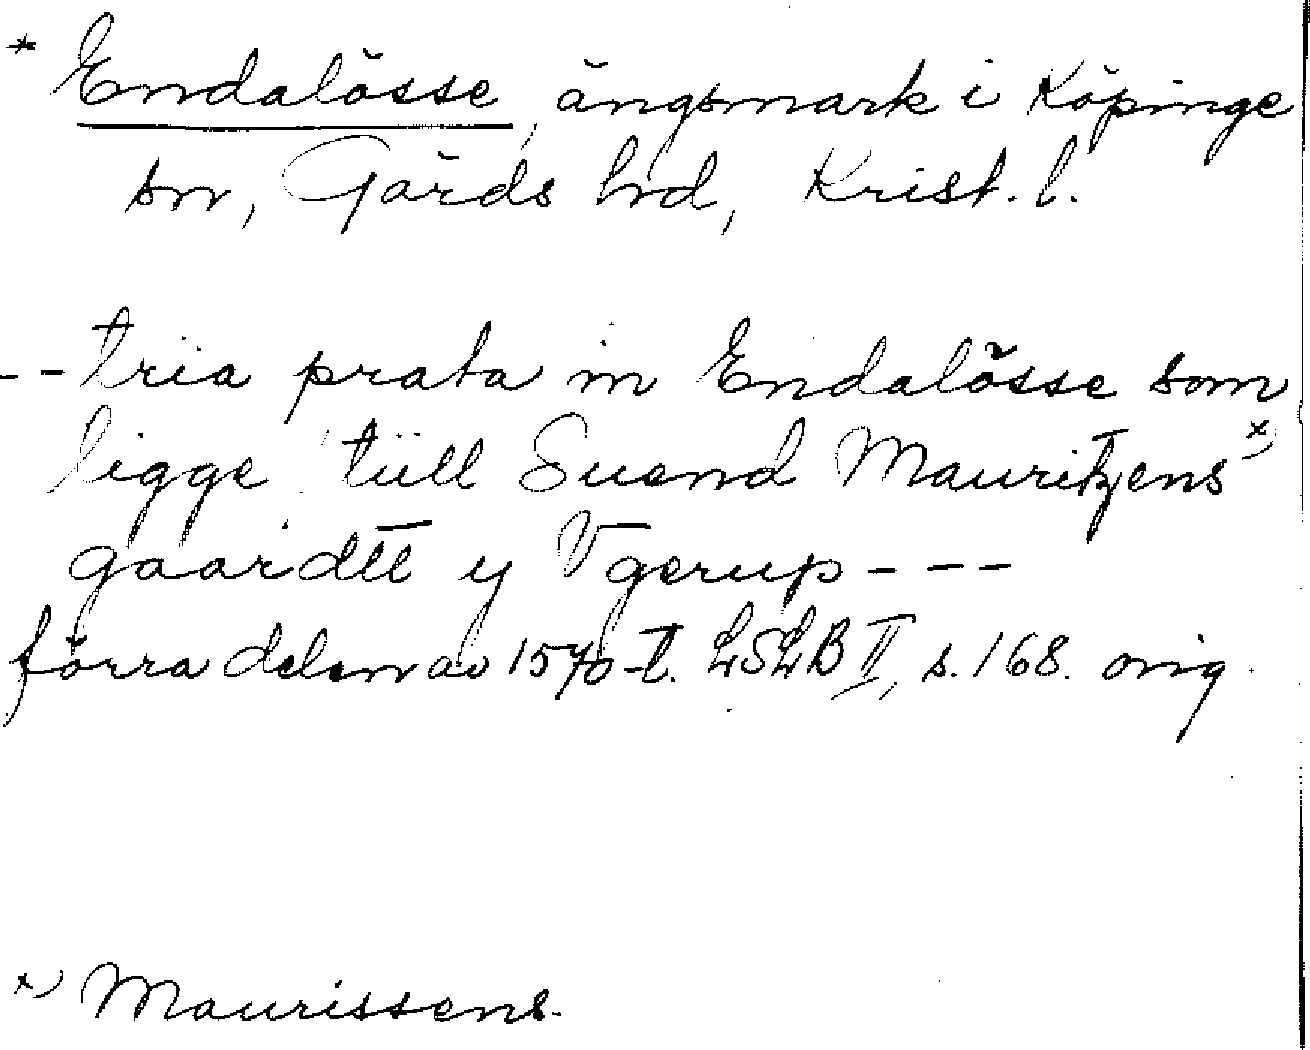 * Endalösse, ängsmark i Köpinge
sn, Gärds hd, Krist. l.
-- tria prata in Endalösse som
ligge tiill Suend Mauritzens x)
gaardtt y Vgerup ---
förra delen av 1570-t. LSLB II, s. 168. orig.
x) Maurissens.